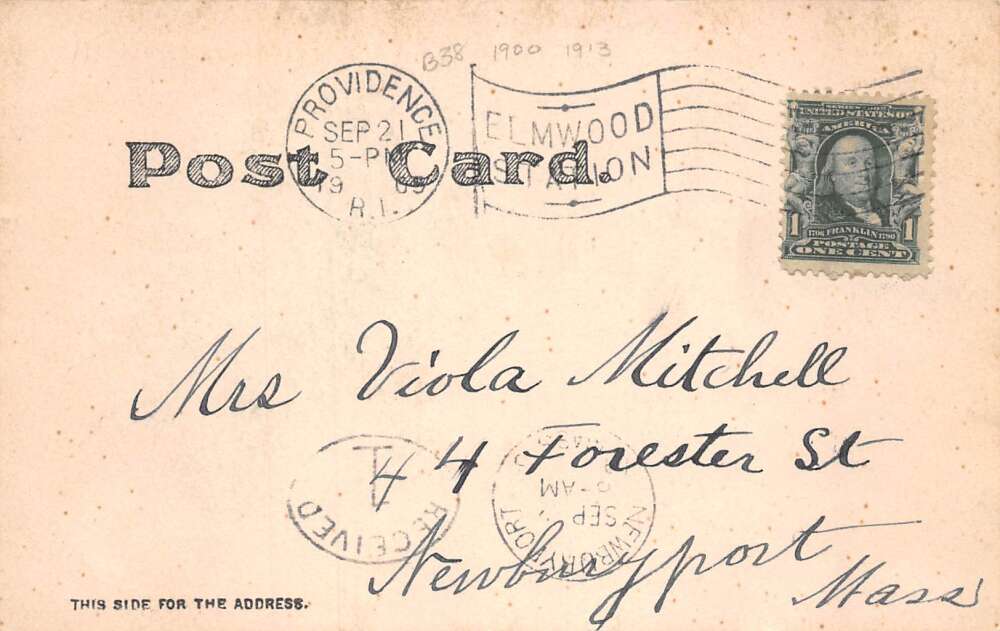 B38 1900 1913
PROVIDENCE
SEP 21
5-PM
19 05
R.I.
ELMWOOD
STATION
Post Card.
SERIES 1902
UNITED STATES OF
AMERICA
1 1
1706 FRANKLIN 1790
POSTAGE
ONE CENT
Mrs Viola Mitchell
44 Forester St
Newburyport
Mass
RECEIVED
1
NEWBURYPORT
SEP
6-AM
THIS SIDE FOR THE ADDRESS.